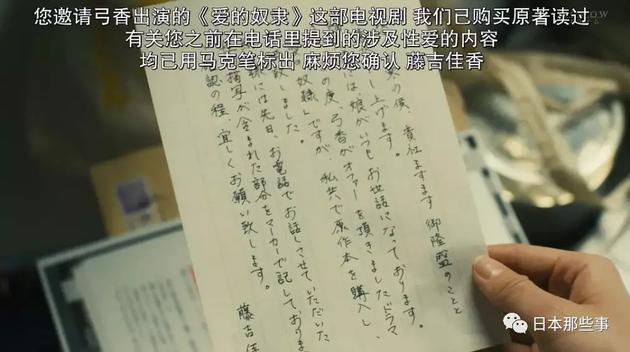 您邀请弓香出演的《爱的奴隶》这部电视剧 我们已购买原著读过
有关您之前在电话里提到的涉及性爱的内容
均已用马克笔标出 麻烦您确认 藤吉佳香
の候、貴社ますます御隆盛のことと
し上げます。
には、娘がいつもお世話になっております。
の度、弓香がオファーを頂きましたドラマ
奴隷』ですが、私共で原作本を購入し、
致しました。
様には先日、お電話でお話しさせていただいた
描写が含まれた部分をマーカーで記しておりま
認の程、宜しくお願い致します。
藤吉佳
日本那些事